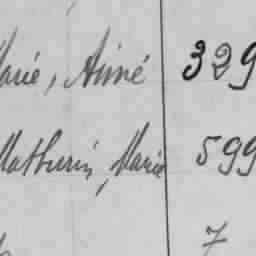 Marie, Aimé 329
Mathurin, Marie 599
7